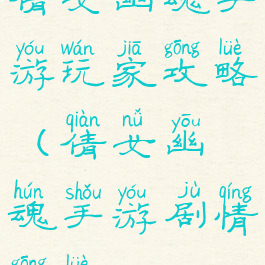 倩女幽魂手
yóu wán jiā gōng lüè
游玩家攻略
qiàn nǚ yōu
（倩女幽
hún shǒu yóu jù qíng
魂手游剧情
gōng lüè